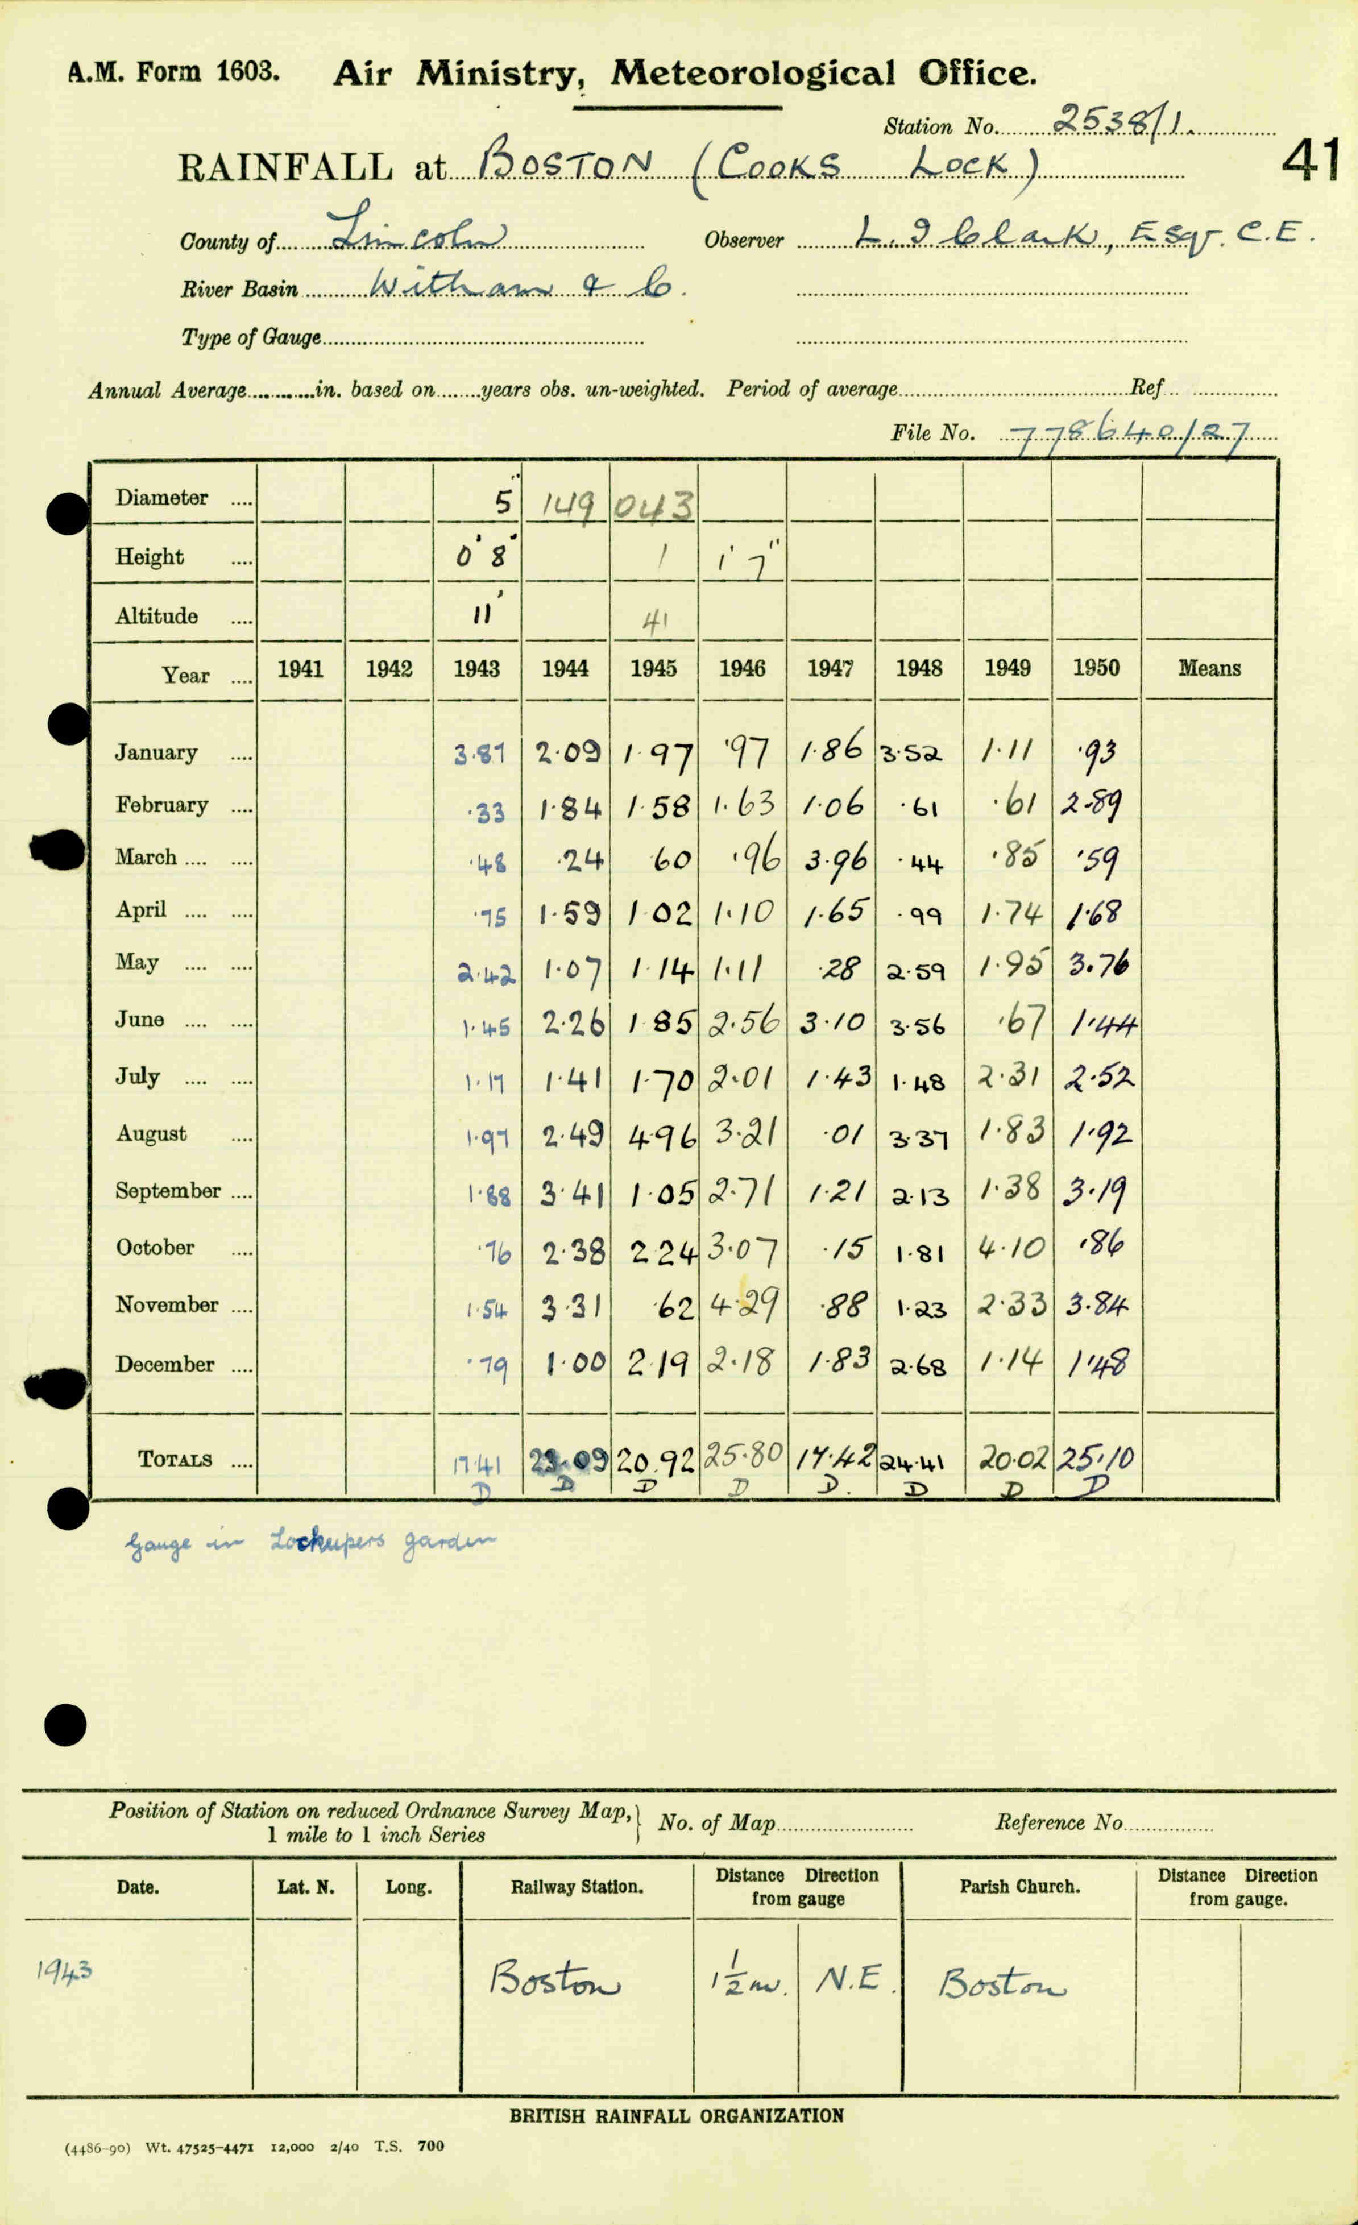 A.M. Form 1603. Air Ministry, Meteorological Office.
Station No. 2538/1.
RAINFALL at BOSTON (COOKS LOCK) 41
County of Lincoln Observer L. Clark, Esqr. C.E.
River Basin Witham & C.
Type of Gauge
Annual Average in. based on years obs. un-weighted. Period of average Ref
File No. 778640/27
Diameter .... 5" 149 043
Height .... 0' 8" 1 1' 7"
Altitude .... 11' 41
Year .... 1941 1942 1943 1944 1945 1946 1947 1948 1949 1950 Means
January .... 3.87 2.09 1.97 .97 1.86 3.52 1.11 .93
February .... .33 1.84 1.58 1.63 1.06 .61 .61 2.89
March .... .... .48 .24 60 .96 3.96 .44 .85 .59
April .... .... .75 1.59 1.02 1.10 1.65 .99 1.74 1.68
May .... .... 2.42 1.07 1.14 1.11 .28 2.59 1.95 3.76
June .... .... 1.45 2.26 1.85 2.56 3.10 3.56 .67 1.44
July .... .... 1.17 1.41 1.70 2.01 1.43 1.48 2.31 2.52
August .... 1.97 2.49 4.96 3.21 .01 3.37 1.83 1.92
September .... 1.88 3.41 1.05 2.71 1.21 2.13 1.38 3.19
October .... .76 2.38 2.24 3.07 .15 1.81 4.10 .86
November .... 1.54 3.31 .62 4.29 .88 1.23 2.33 3.84
December .... .79 1.00 2.19 2.18 1.83 2.68 1.14 1.48
TOTALS .... 17.41 23.09 20.92 25.80 17.42 24.41 20.02 25.10
D D D D D. D D D
Gauge in Lockeepers garden
Position of Station on reduced Ordnance Survey Map, } No. of Map Reference No
1 mile to 1 inch Series
Date. Lat. N. Long. Railway Station. Distance Direction from gauge Parish Church. Distance Direction from gauge.
1943 Boston 1 1/2 m. N.E. Boston
BRITISH RAINFALL ORGANIZATION
(4486-90) Wt. 47525-4471 12,000 2/40 T.S. 700